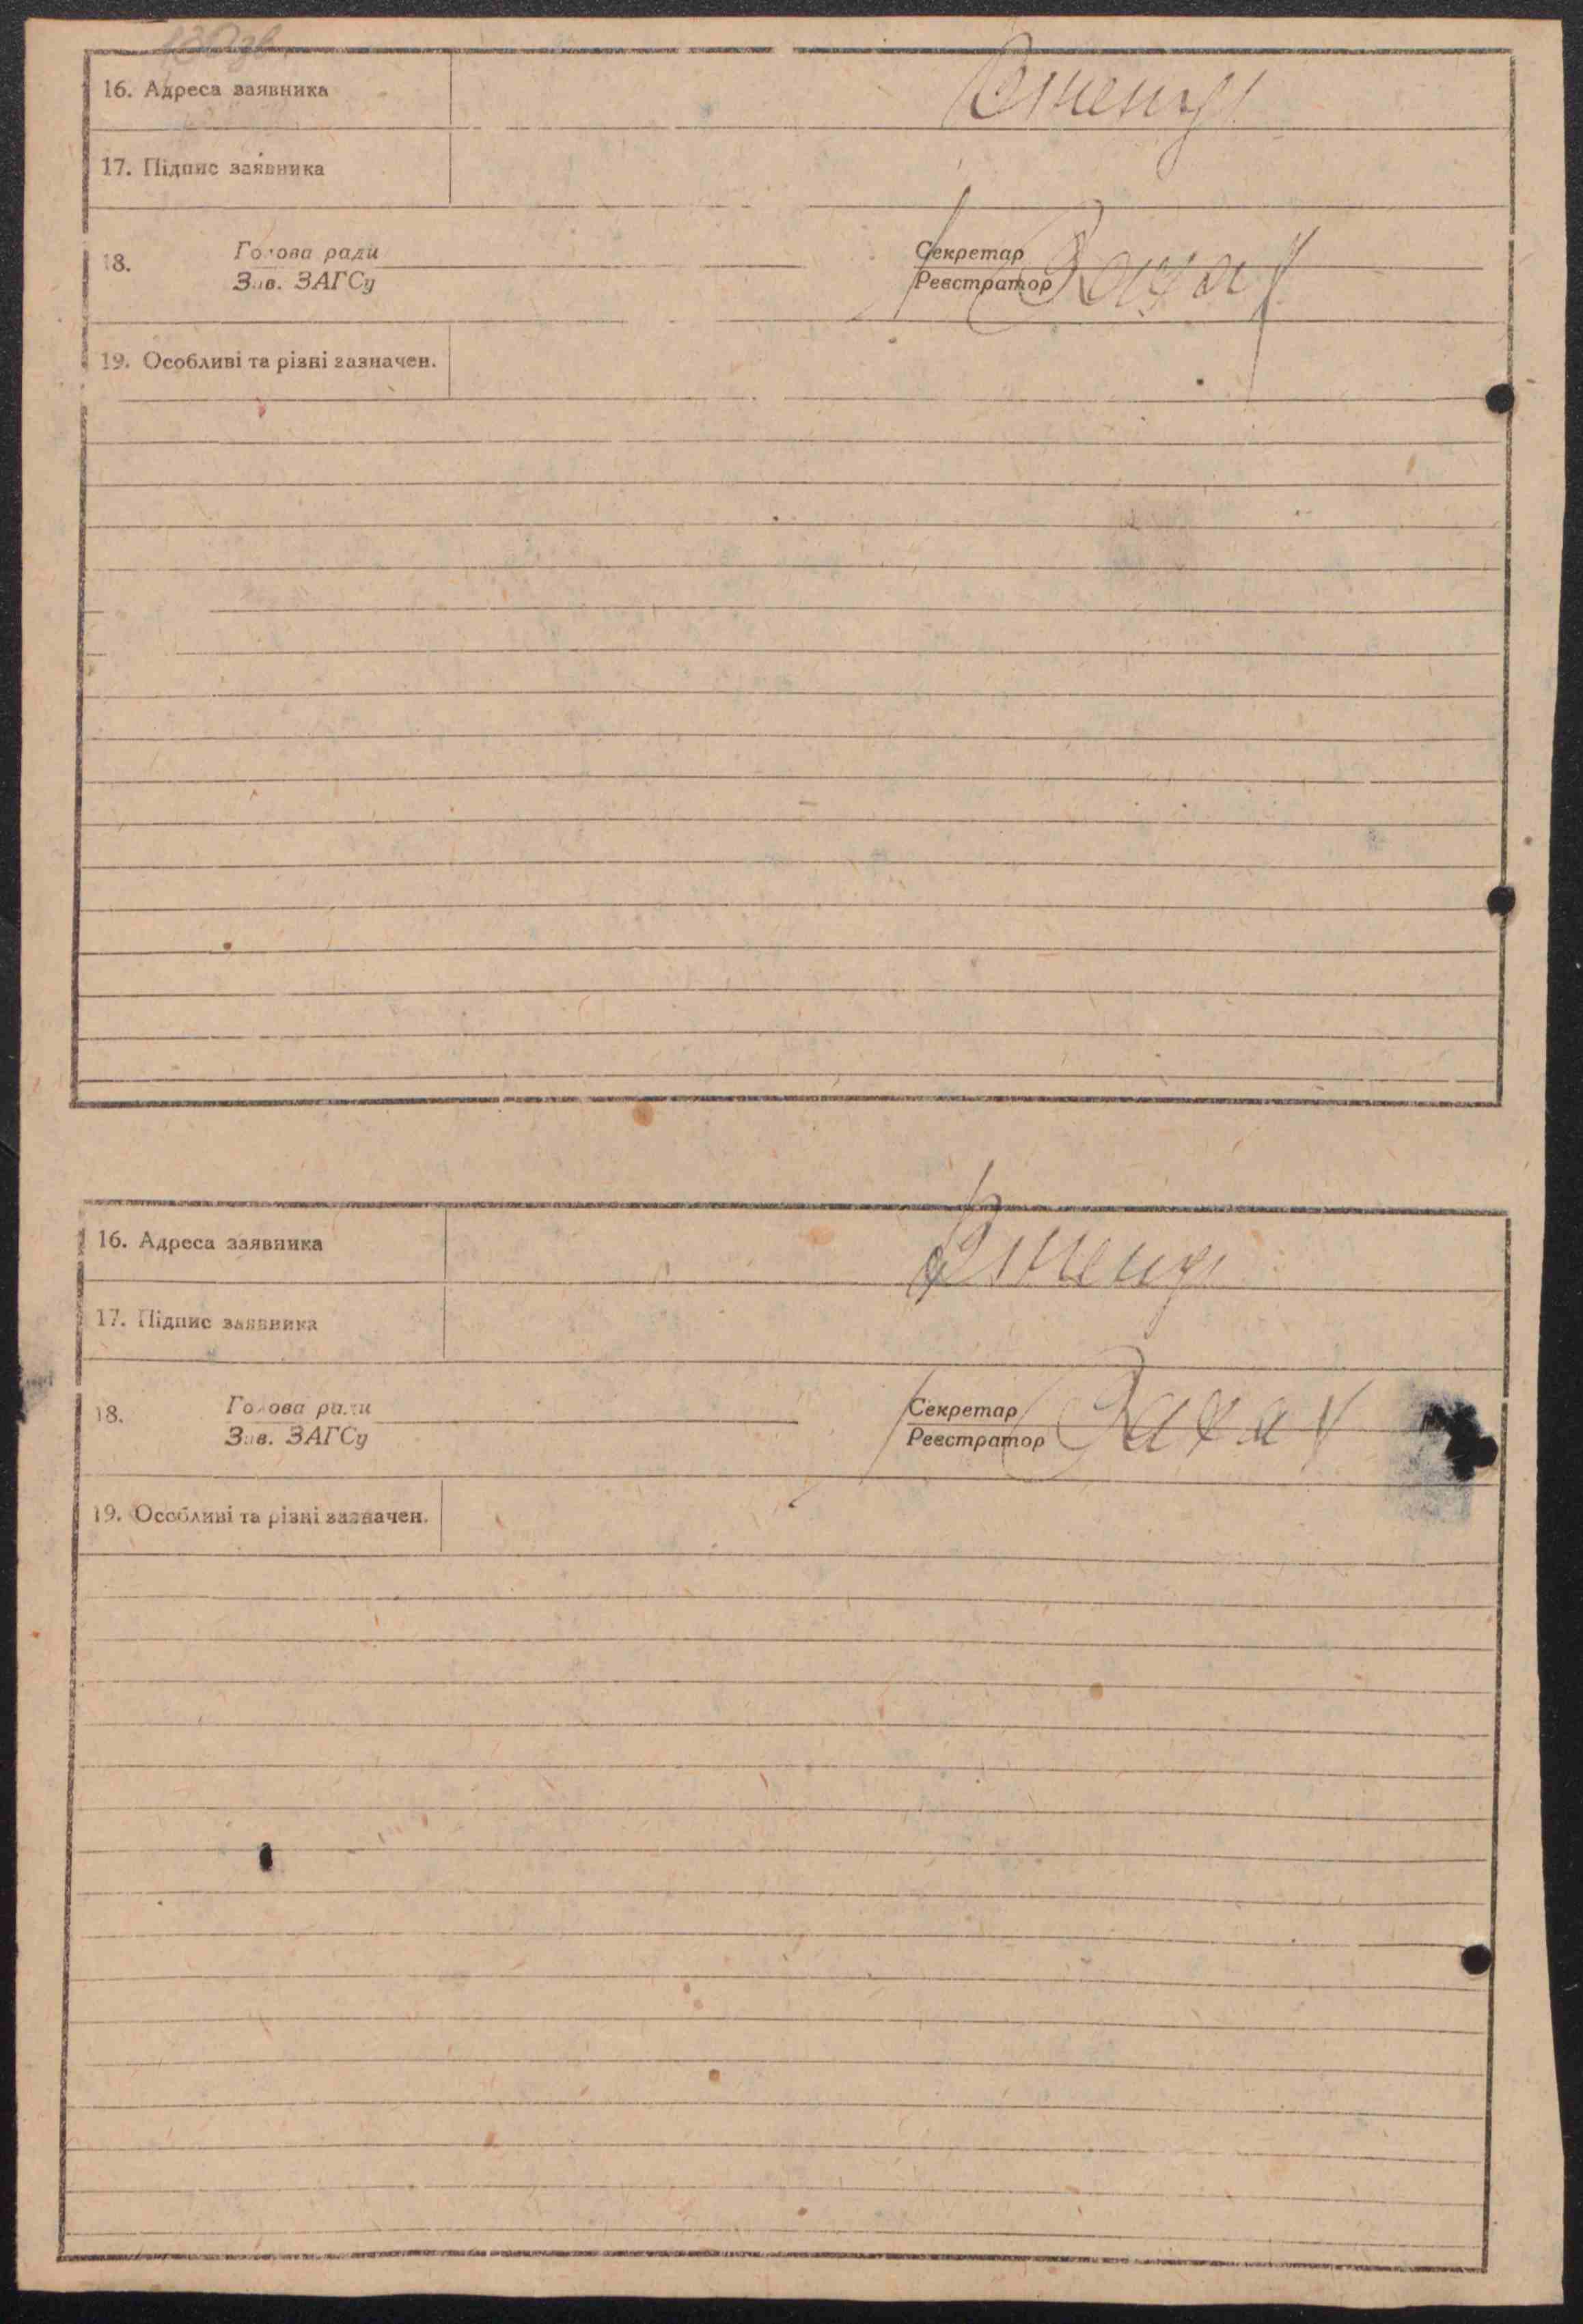 16. Адреса заявника
17. Підпис заявника
18. Голова ради
Зав. ЗАГСу
Секретар
Реєстратор
19. Особливі та різні зазначен.
16. Адреса заявника
17. Підпис заявника
18. Голова ради
Зав. ЗАГСу
Секретар
Реєстратор
19. Особливі та різні зазначен.